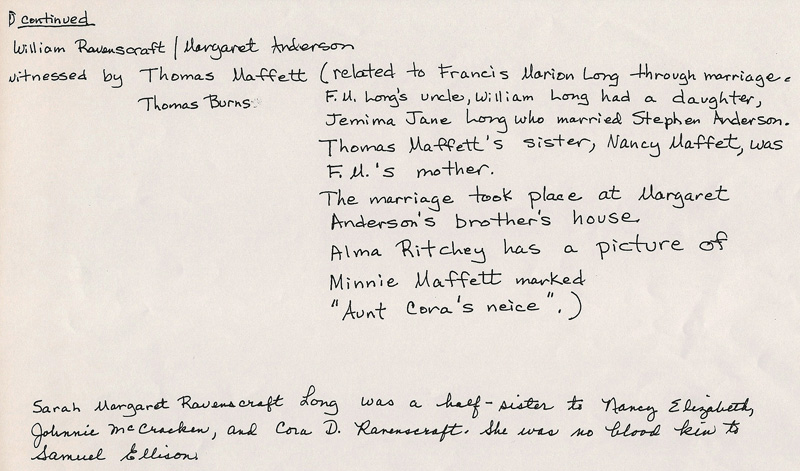 continued
William Ravenscraft / Margaret Anderson
witnessed by Thomas Maffett (related to Francis Marion Long through marriage.
Thomas Burns
F.M. Long's uncle, William Long had a daughter,
Jemima Jane Long who married Stephen Anderson.
Thomas Maffett's sister, Nancy Maffet, was
F.M.'s mother.
The marriage took place at Margaret
Anderson's brother's house
Alma Ritchey has a picture of
Minnie Maffett marked
"Aunt Cora's neice".)
Sarah Margaret Ravenscraft Long was a half-sister to Nancy Elizabeth,
Johnnie McCracken, and Cora D. Ravenscraft. She was no blood kin to
Samuel Ellison.